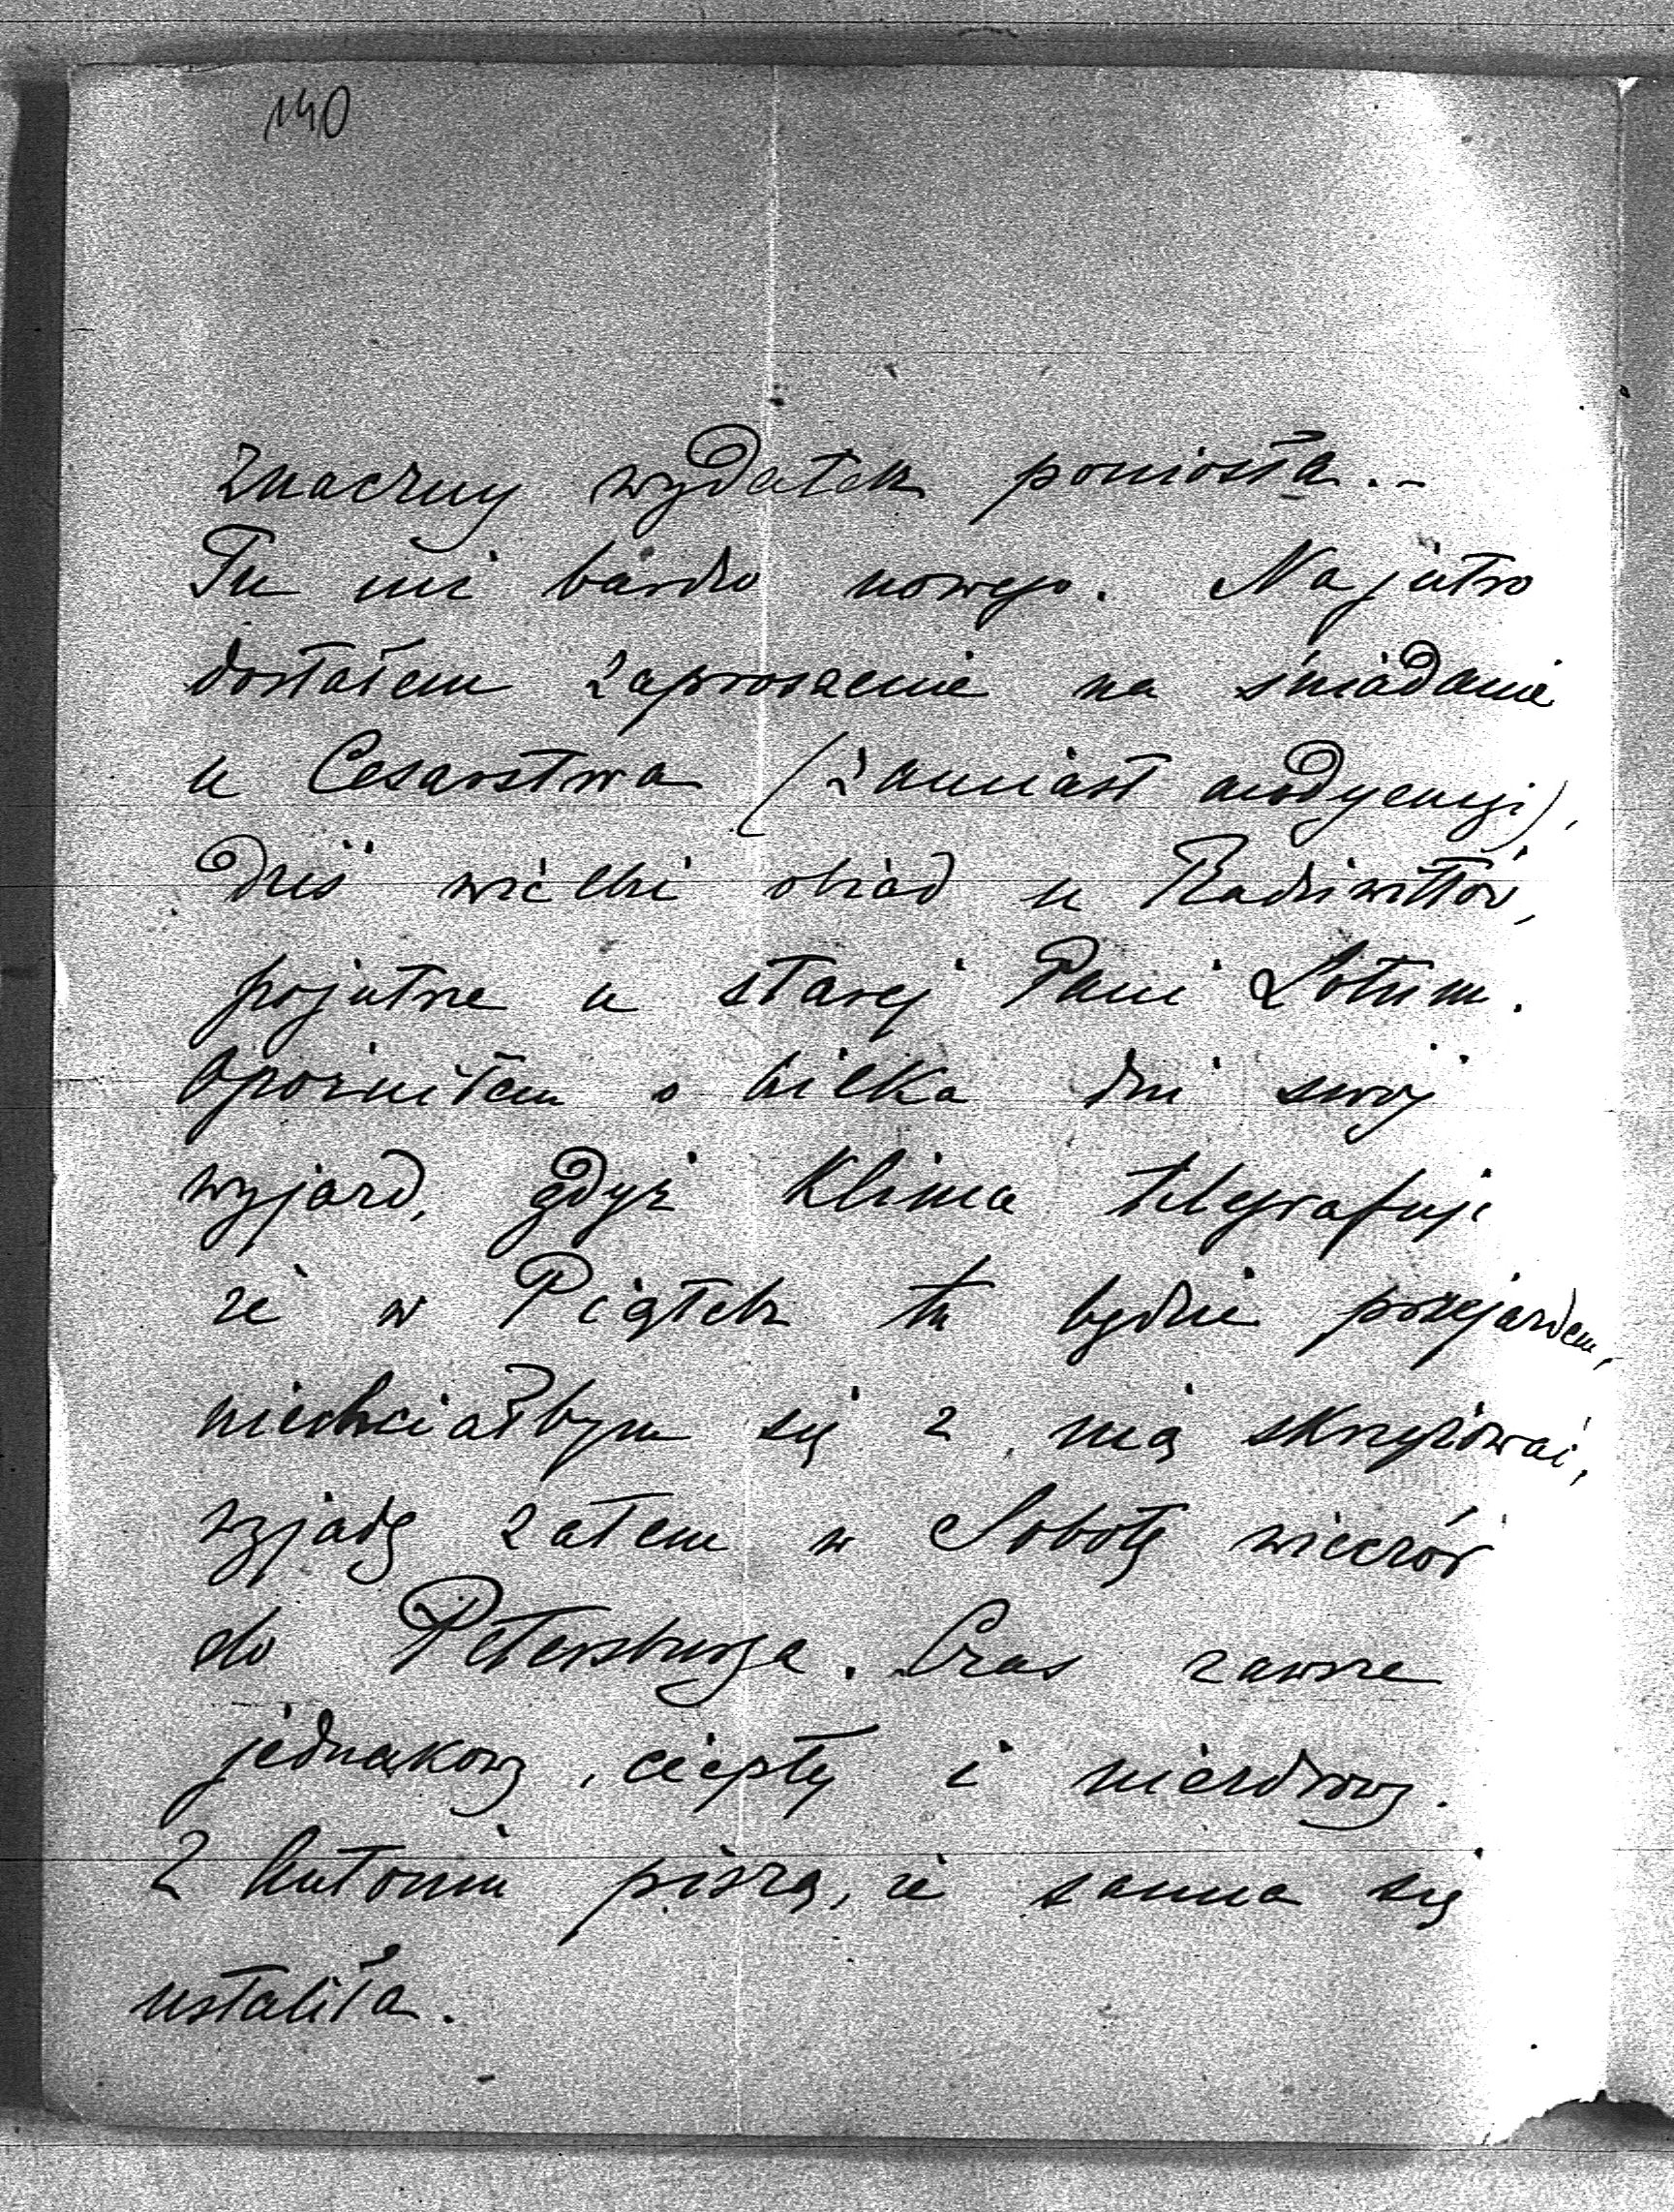 140
znaczny wydatek poniosła.-
Tu nic bardzo nowego. Na jutro
dostałem zaproszenie na śniadanie
u Cesarstwa (zamiast audyencyi),
dziś wielki obiad u Radziwiłłów,
pojutrze u starej Pani Lotum.
Opóźniłem o kilka dni swój
wyjazd, gdyż Klima telegrafuje
że w Piątek tu będzie przejazdem,
niechciałbym się z nią skrzyżować,
wyjadę zatem w Sobotę wieczór
do Petersburga. Czas zawsze
jednakowy, ciepły i niezdrowy.
Z Antonin piszą, że sanna się
ustaliła.